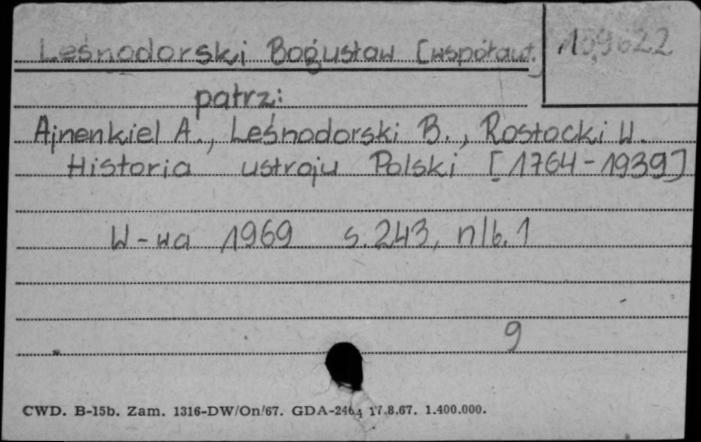 Leśnodorski Bogusław [współaut.]
109622
patrz:
Ajnenkiel A., Leśnodorski B., Rostocki W.
Historia ustroju Polski [1764-1939]
W-wa 1969 s.243, nlb.1
9
CWD. B-15b. Zam. 1316-DW/On/67. GDA-2464 17.8.67. 1.400.000.